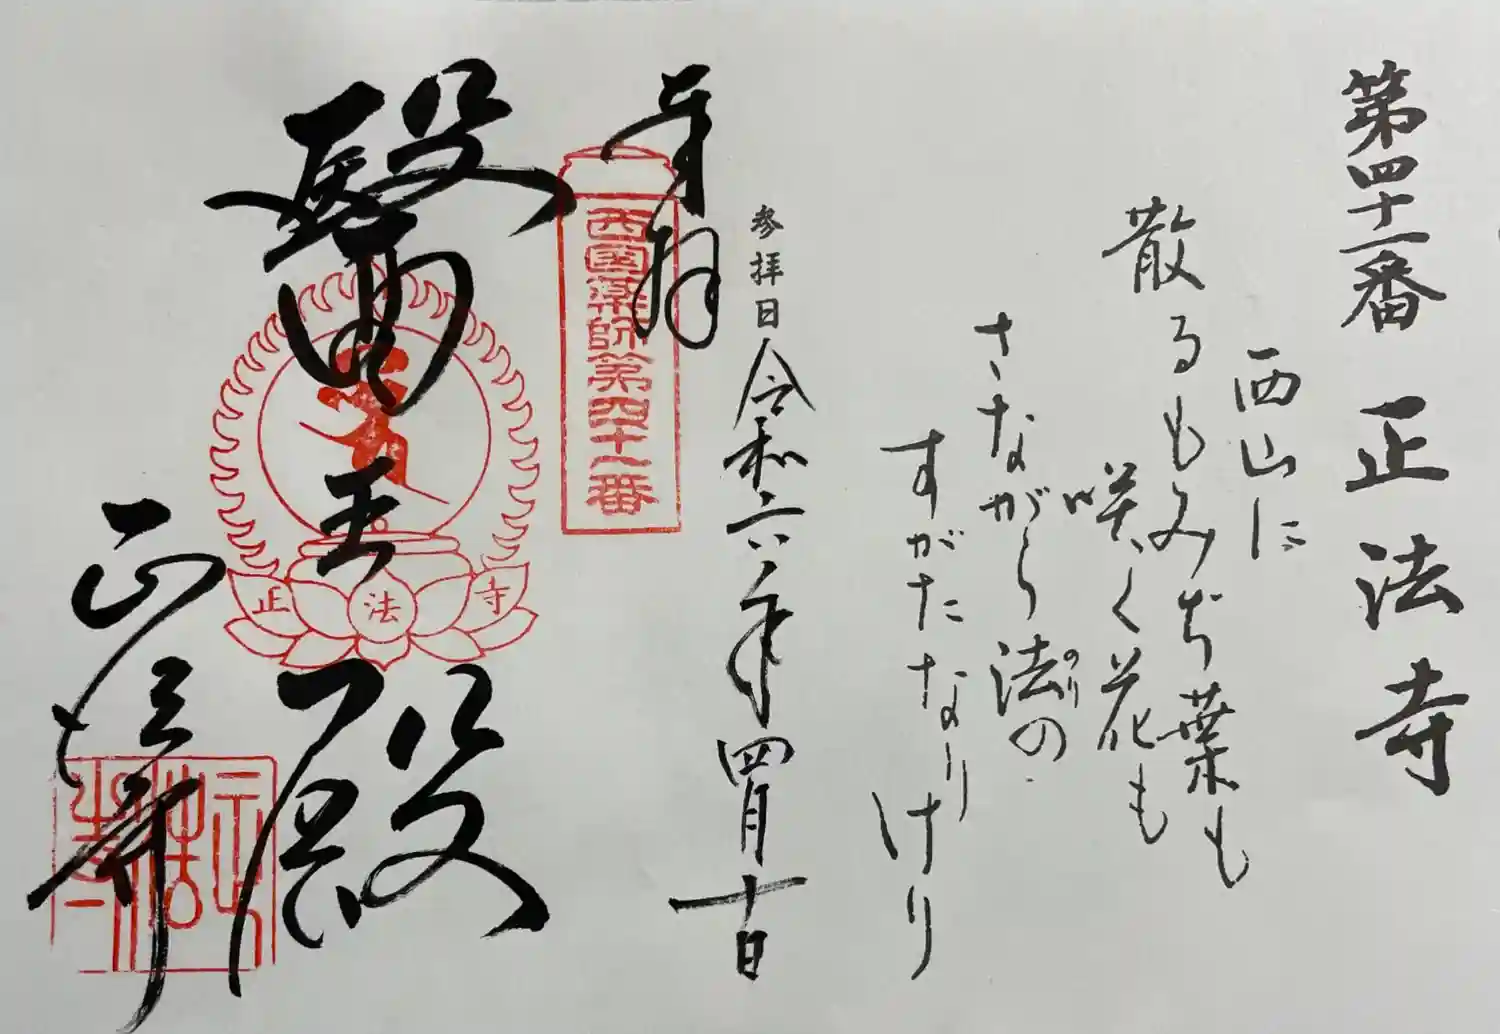 第四十一番 正法寺
西山に
散るもみぢ葉も
咲く花も
さながら法の
のり
すがたなりけり
参拝日 令和六年四月十日
奉拝
西国薬師第四十一番
醫王殿
正法寺
正法寺
正法寺